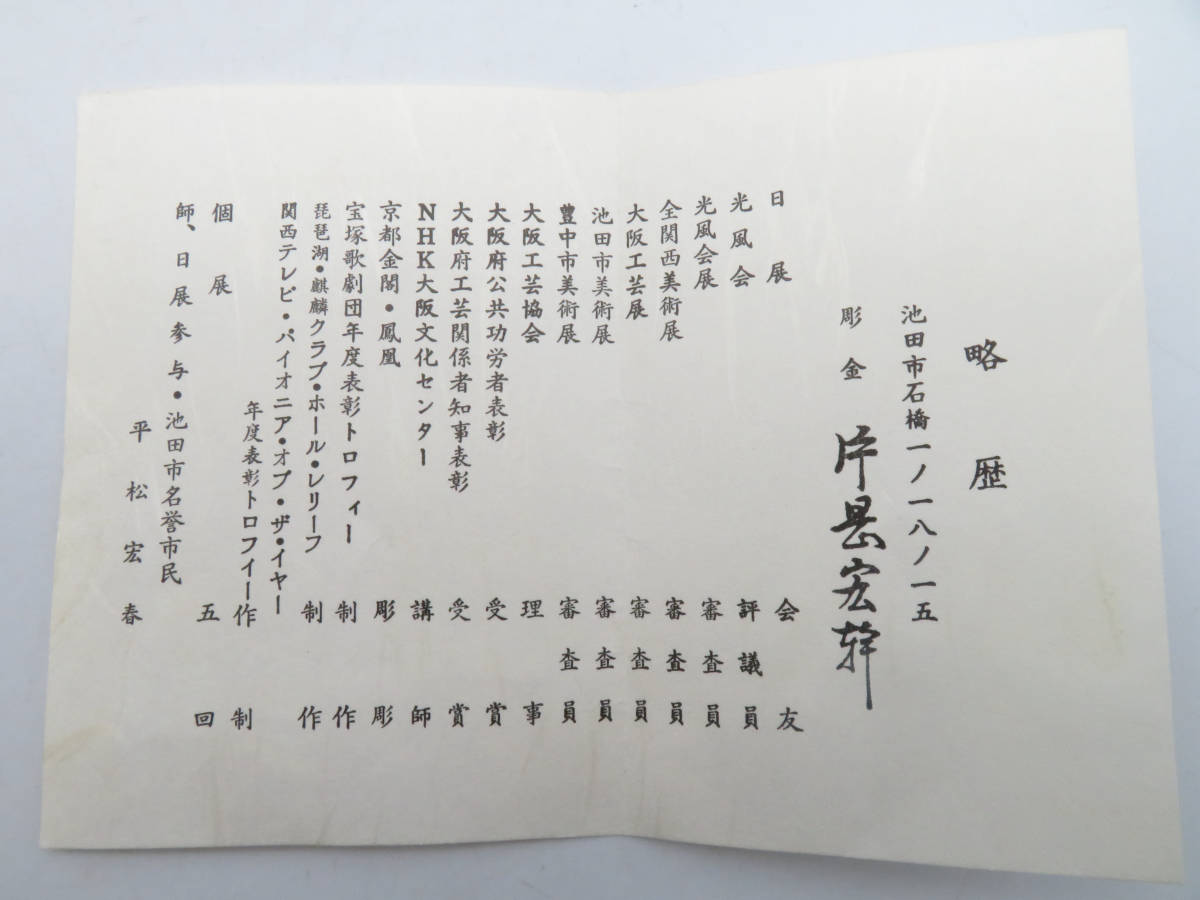 略歴
池田市石橋一ノ一八ノ一五
彫金 片岡宏幹
日展 会友
光風会 評議員
光風会展 審査員
全関西美術展 審査員
大阪工芸展 審査員
池田市美術展 審査員
豊中市美術展 審査員
大阪工芸協会 理事
大阪府公共功労者表彰 受賞
大阪府工芸関係者知事表彰 受賞
NHK大阪文化センター 講師
京都金閣・鳳凰 彫彫
宝塚歌劇団年度表彰トロフィー 制作
琵琶湖・麒麟クラブ・ホール・レリーフ 制作
関西テレビ・パイオニア・オブ・ザ・イヤー
年度表彰トロフィー 作制
個展 五回
師、日展参与・池田市名誉市民
平松宏春